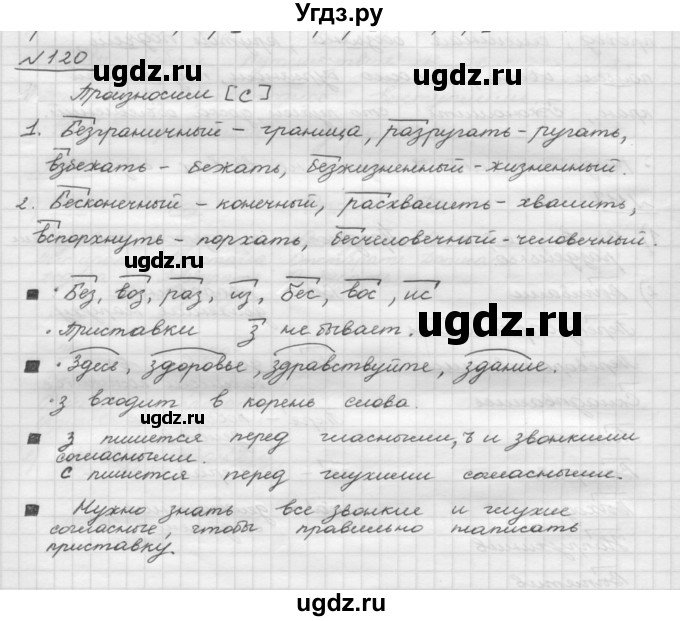 Угдз.ру
№120
Произносим [с]
1. Безграничный – граница, разругать – ругать,
взбежать – бежать, безжизненный – жизненный.
2. Бесконечный – конечный, расхвалить – хвалить,
вспорхнуть – порхать, бесчеловечный – человечный.
• Без, воз, раз, из, бес, вос, ис
• Приставки з не бывает.
• Здесь, здоровье, здравствуйте, здание.
• з входит в корень слова.
З пишется перед гласными, ъ и звонкими
согласными.
С пишется перед глухими согласными.
Нужно знать все звонкие и глухие
согласные, чтобы правильно написать
приставку.
ugdz.ru
ugdz.ru
ugdz.ru
ugdz.ru
ugdz.ru
ugdz.ru
ugdz.ru
ugdz.ru